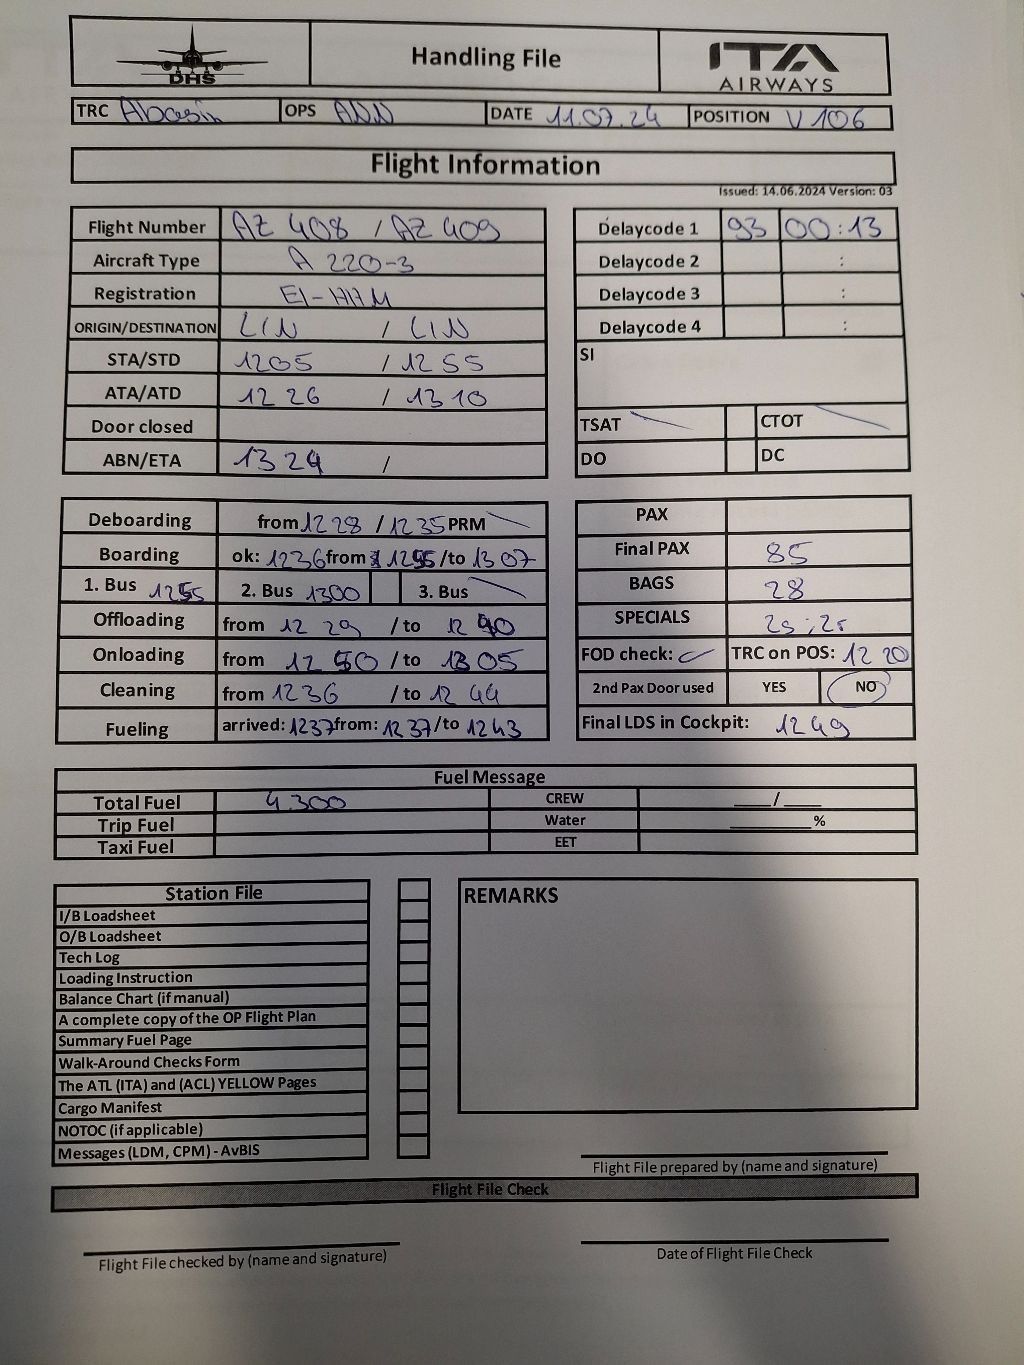 DHS
Handling File
ITA
AIRWAYS
TRC Abasin OPS ANN DATE 11.07.24 POSITION V 106
Flight Information
Issued: 14.06.2024 Version: 03
Flight Number AZ 408 / AZ 409
Aircraft Type A 220-3
Registration EI-HHM
ORIGIN/DESTINATION LIN / LIN
STA/STD 1205 / 1255
ATA/ATD 1226 / 1310
Door closed
ABN/ETA 1324 /
Delaycode 1 93 00:13
Delaycode 2 :
Delaycode 3 :
Delaycode 4 :
SI
TSAT CTOT
DO DC
Deboarding from 1228 / 1235 PRM
Boarding ok: 1236 from 1255 /to 1307
1. Bus 1255 2. Bus 1300 3. Bus
Offloading from 1229 /to 1240
Onloading from 1250 /to 1305
Cleaning from 1236 /to 1244
Fueling arrived: 1237 from: 1237 /to 1243
PAX
Final PAX 85
BAGS 28
SPECIALS
FOD check: TRC on POS: 1220
2nd Pax Door used YES NO
Final LDS in Cockpit: 1249
Fuel Message
Total Fuel 4300 CREW ____/____
Trip Fuel Water _________%
Taxi Fuel EET
Station File
I/B Loadsheet
O/B Loadsheet
Tech Log
Loading Instruction
Balance Chart (if manual)
A complete copy of the OP Flight Plan
Summary Fuel Page
Walk-Around Checks Form
The ATL (ITA) and (ACL) YELLOW Pages
Cargo Manifest
NOTOC (if applicable)
Messages (LDM, CPM) - AvBIS
REMARKS
Flight File prepared by (name and signature)
Flight File Check
Flight File checked by (name and signature)
Date of Flight File Check